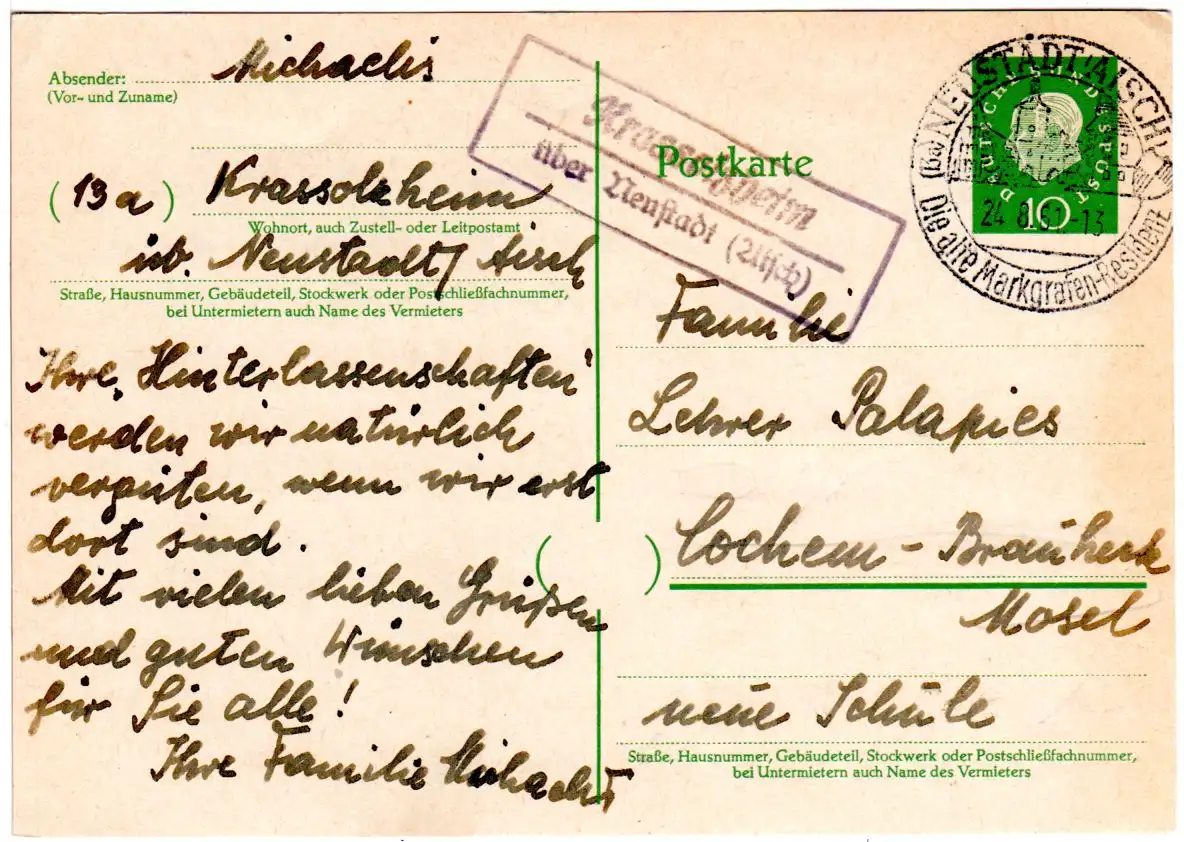 Absender: Michaelis
(Vor- und Zuname)
(13a) Krassolzheim
Wohnort, auch Zustell- oder Leitpostamt
üb. Neustadt/Aisch
Straße, Hausnummer, Gebäudeteil, Stockwerk oder Postschließfachnummer,
bei Untermietern auch Name des Vermieters
Ihre „Hinterlassenschaften"
werden wir natürlich
vergüten, wenn wir erst
dort sind.
Mit vielen lieben Grüßen
und guten Wünschen
für Sie alle!
Ihre Familie Michaelis
Krassolzheim
über Neustadt (Aisch)
Postkarte
DEUTSCHE BUNDESPOST
10
(13a) NEUSTADT/AISCH
24.8.61-13
Die alte Markgrafen-Residenz
Familie
Lehrer Palapies
Cochem - Brauheck
Mosel
neue Schule
Straße, Hausnummer, Gebäudeteil, Stockwerk oder Postschließfachnummer,
bei Untermietern auch Name des Vermieters